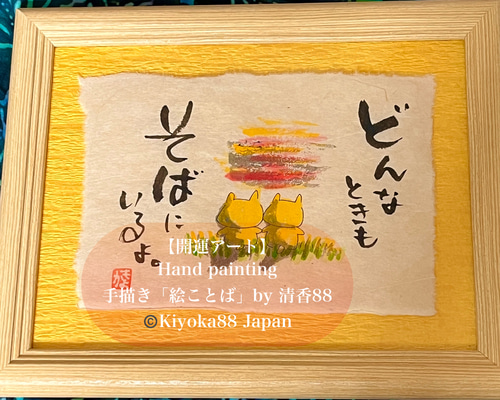 どんな
ときも
そばに
いるよ。
【開運アート】
Hand painting
手描き「絵ことば」by 清香88
©Kiyoka88 Japan